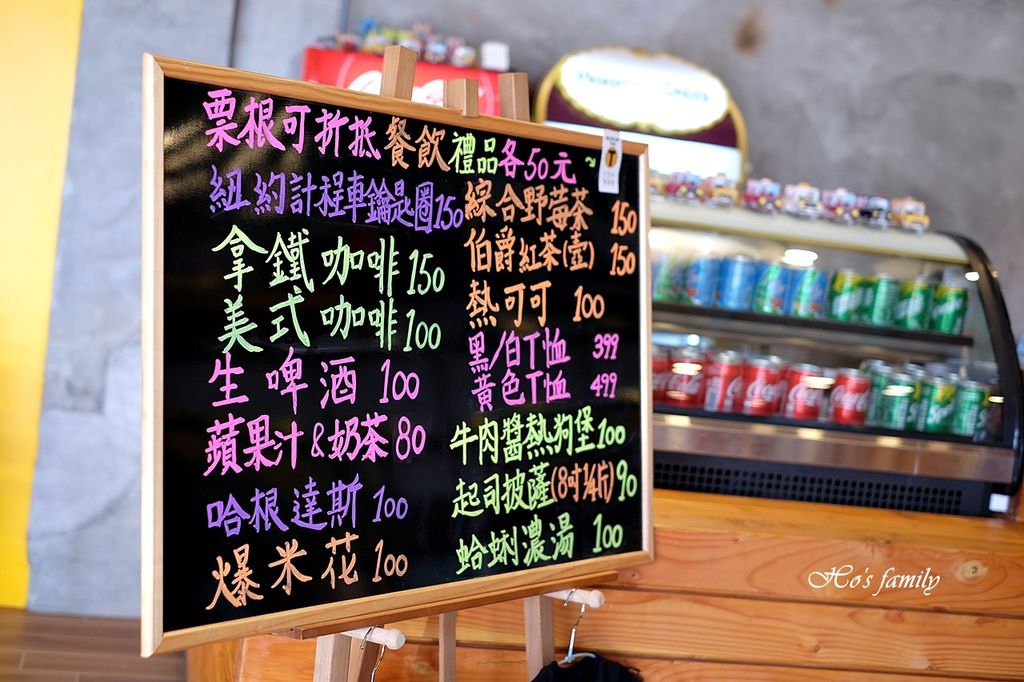 栗根可折抵餐飲禮品各50元~
紐約計程車鑰匙圈150
拿鐵咖啡150
美式咖啡100
生啤酒100
蘋果汁&奶茶80
哈根達斯100
爆米花100
綜合野莓茶150
伯爵紅茶(壺)150
熱可可100
黑/白T恤 399
黃色T恤 499
牛肉醬熱狗堡100
起司披薩(8吋¼片)90
蛤蜊濃湯100
Coca-Cola
Ho's family